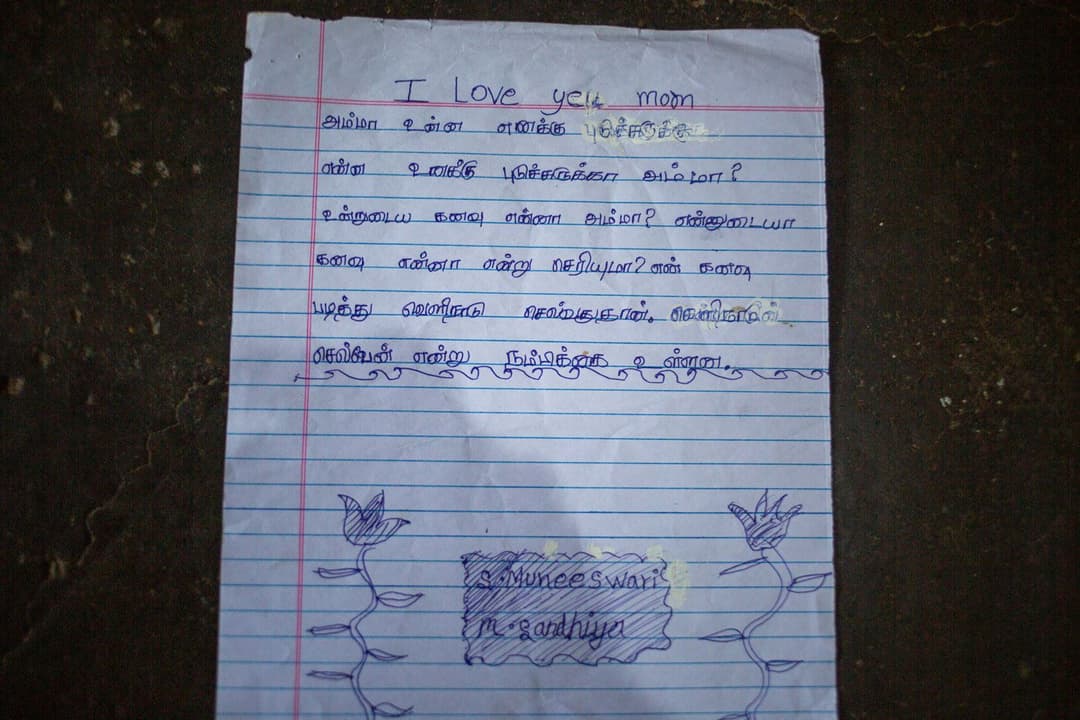 I Love you mom
அம்மா உன்ன எனக்கு புடுச்சருக்கு
என்ன உனக்கு புடுச்சருக்கா அம்மா?
உன்றுடைய கனவு என்னா அம்மா? என்னுடையா
கனவு என்னா என்று செரியுமா? என் கனவு
படிக்து வெளிநாடு செல்வதுதான். வெளிநாடில்
செல்வேன் என்று நம்பிக்கை உள்ளன.
S. Muneeswari
M. Sandhiya